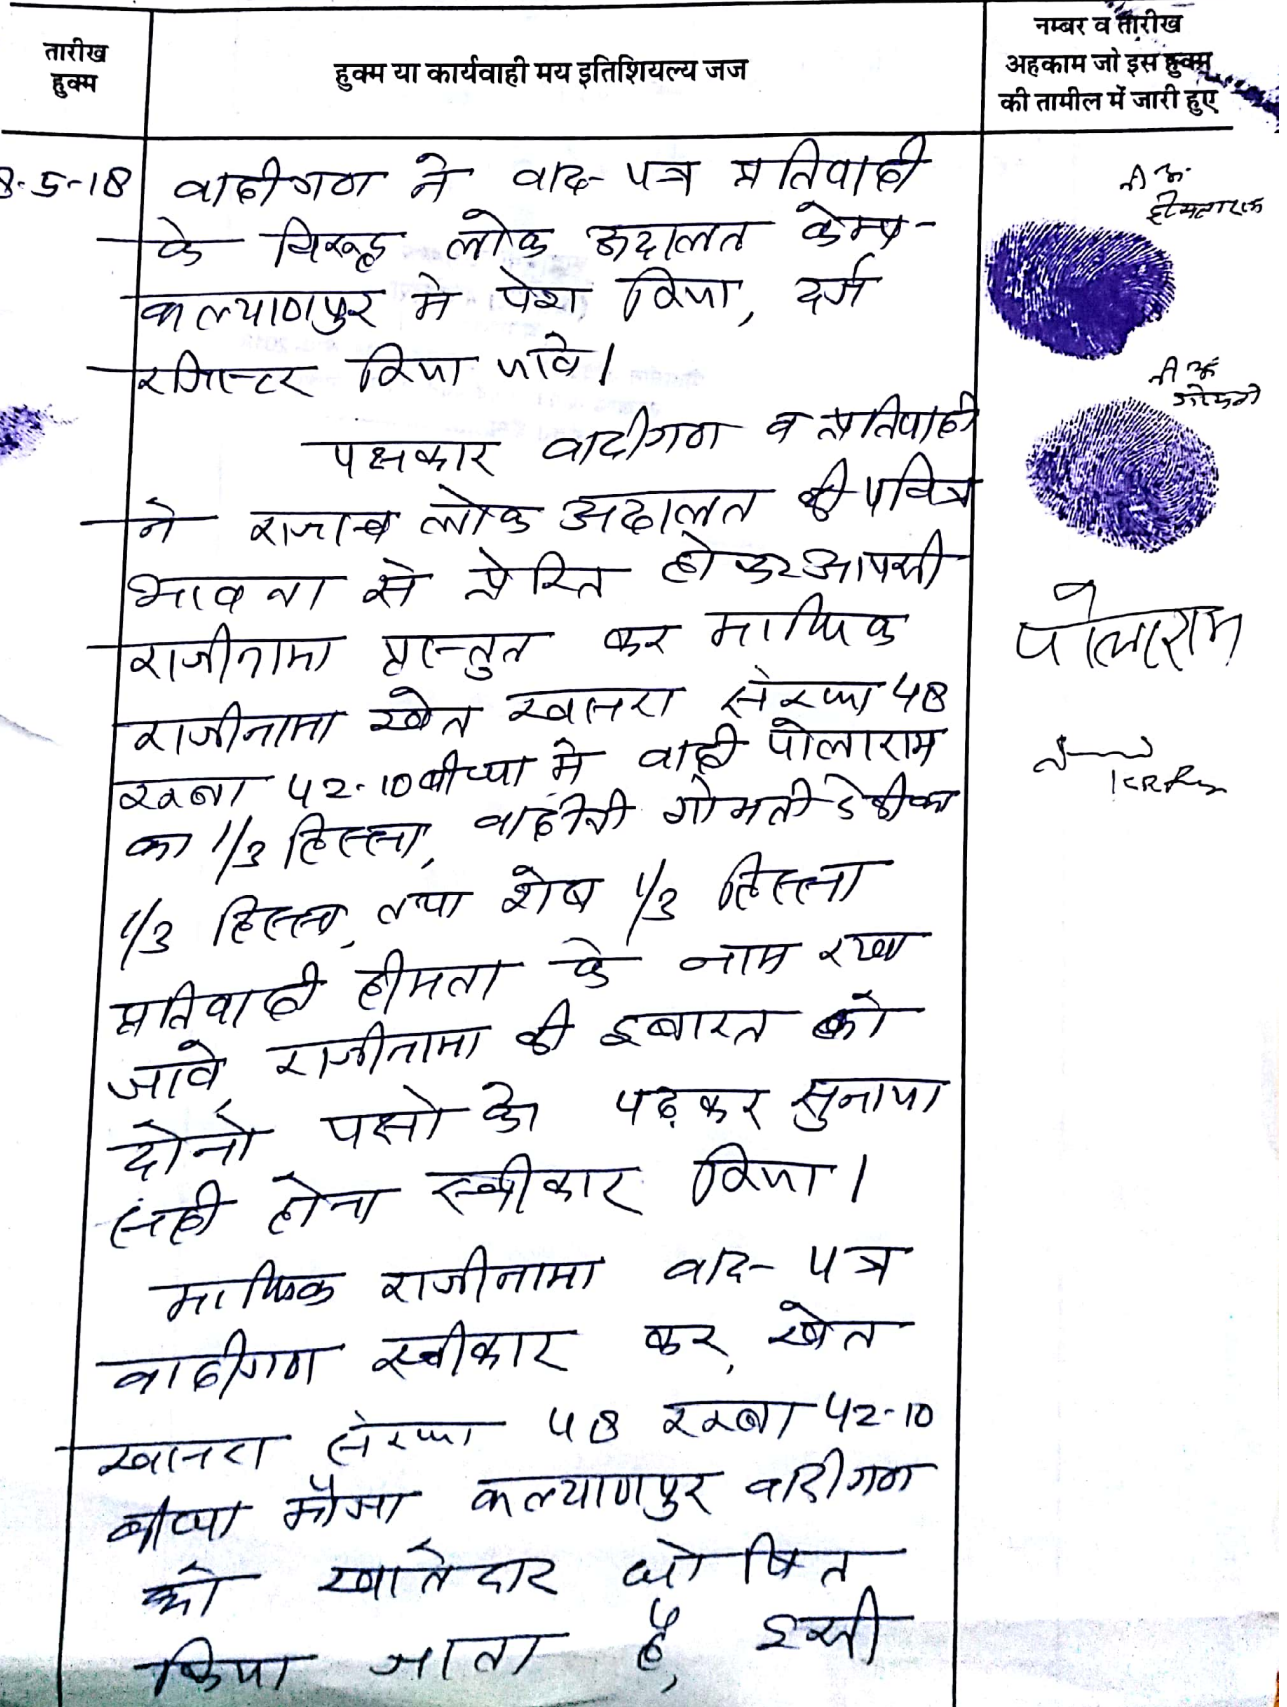 तारीख
हुक्म
हुक्म या कार्यवाही मय इतिशियल्य जज
नम्बर व तारीख
अहकाम जो इस हुक्म
की तामील में जारी हुए
8-5-18
वादीगण ने वाद-पत्र प्रतिवादी
के विरूद्ध लोक अदालत केम्प-
कल्याणपुर मे पेश किया, दर्ज
रजिस्टर किया जावे।
पक्षकार वादीगण व प्रतिवादी
ने राजस्व लोक अदालत की पवित्र
भावना से प्रेरित होकर आपसी
राजीनामा प्रस्तुत कर माफिक
राजीनामा खेत खसरा संख्या 48
रकबा 42-10 बीघा मे वादी पोलाराम
का 1/3 हिस्सा, वादीनी गोमती देवी का
1/3 हिस्सा, तथा शेष 1/3 हिस्सा
प्रतिवादी हीमता के नाम रखा
जावे, राजीनामा की इबारत को
दोनो पक्षो के पढ़कर सुनाया
सही होना स्वीकार किया।
माफिक राजीनामा वाद-पत्र
वादीगण स्वीकार कर, खेत
खसरा संख्या 48 रकबा 42-10
बीघा मौजा कल्याणपुर वादीगण
को खातेदार घोषित
किया जाता है, इसी
नी अं
हीमताराम
नी अं
गोमती
पोलाराम